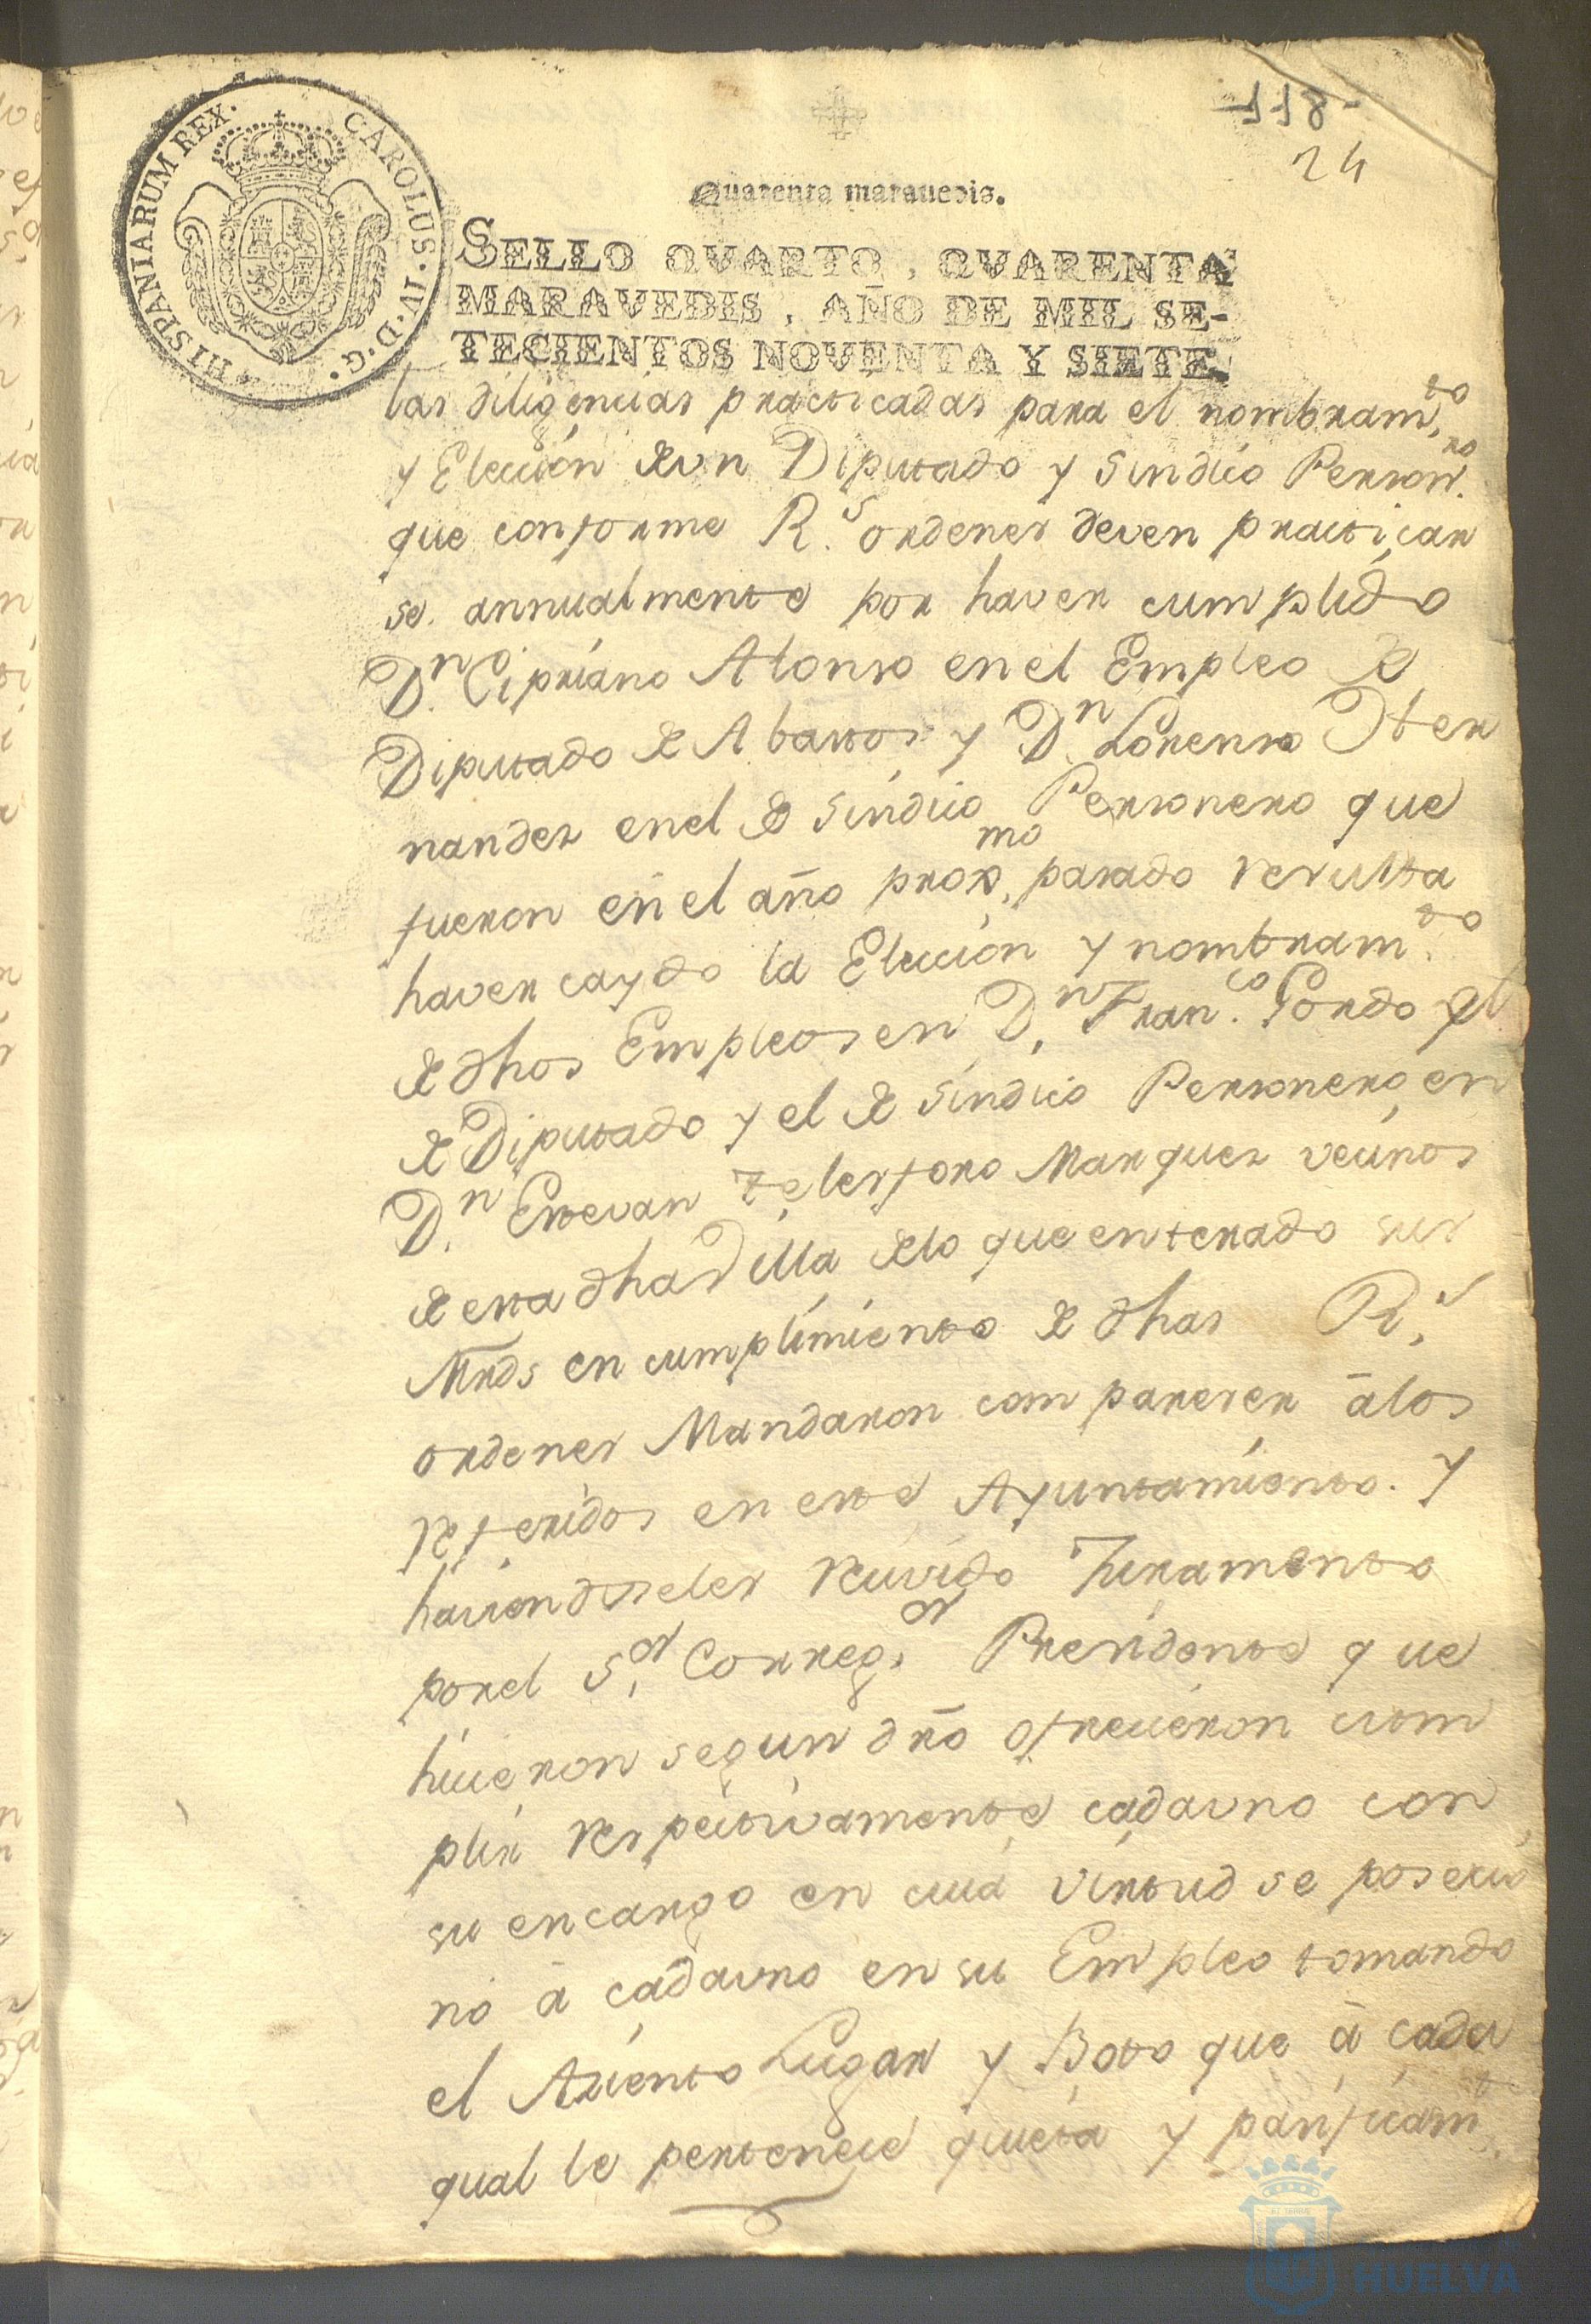 HISPANIARUM REX. CAROLUS. IV. D. G.
118-
24
Quarenta maravedis.
SELLO QVARTO, QVARENTA
MARAVEDIS, AÑO DE MIL SE-
TECIENTOS NOVENTA Y SIETE.
las diligencias practicadas para el nombram.to
y Elección de vn Diputado y Sindico Person.ro
que conforme R.s ordenes deven practicar
se annualmente por haver cumplido
D.n Cipriano Alonso en el Empleo de
Diputado de Abastos y D.n Lorenso Her
nandez en el de Sindico Personero que
fueron en el año prox.mo pasado resulta
haver caydo la Elección y nombram.to
de dhos Empleos en D.n Fran.co Gordo el
de Diputado y el de Sindico Personero en
D.n Estevan Telesforo Marquez vecinos
de esta dha Villa de lo que enterado sus
Mrds en cumplimiento de dhas R.s
ordenes Mandaron compareser à los
referidos en este Ayuntamiento. Y
haviendoseles recivido Juramento
por el S.or Correg.or Presidente que
hicieron segun dro ofrecieron cum
plir respectivamente cada vno con
su encargo en cuia virtud se posecio
nó à cada vno en su Empleo tomando
el Aziento Lugar y Boto que à cada
qual le pertenece quieta y pasificam.te
HUELVA